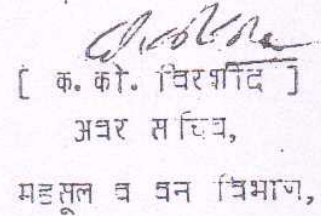 [ क. को. विरशीद ]
अवर सचिव,
महसूल व वन विभाग,